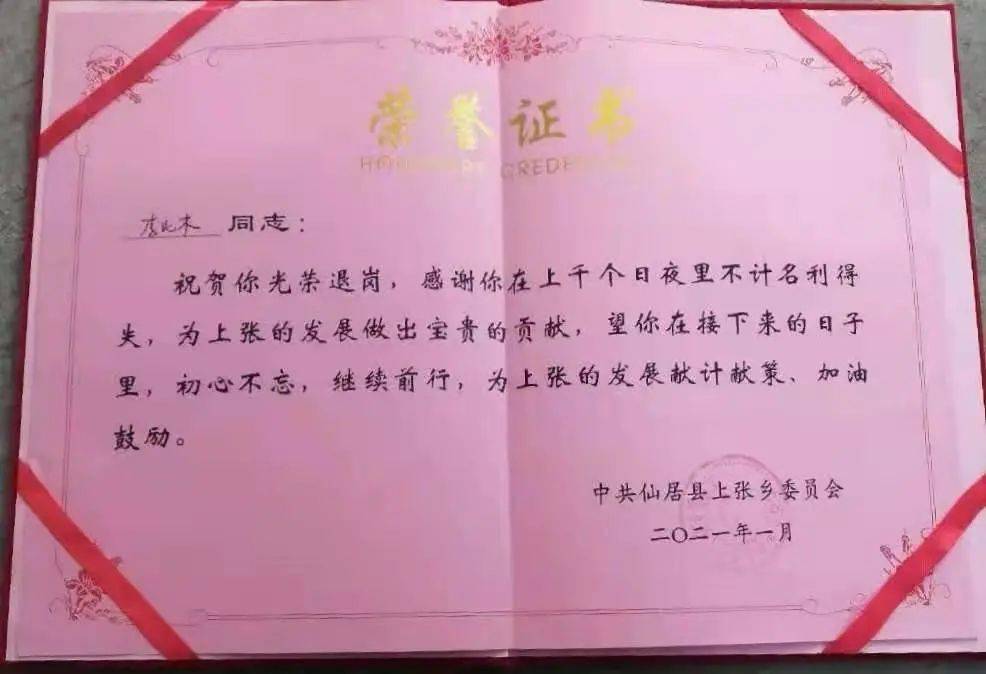 荣誉证书
同志：
祝贺你光荣退岗，感谢你在上千个日夜里不计名利得
失，为上张的发展做出宝贵的贡献，望你在接下来的日子
里，初心不忘，继续前行，为上张的发展献计献策、加油
鼓励。
中共仙居县上张乡委员会
二〇二一年一月